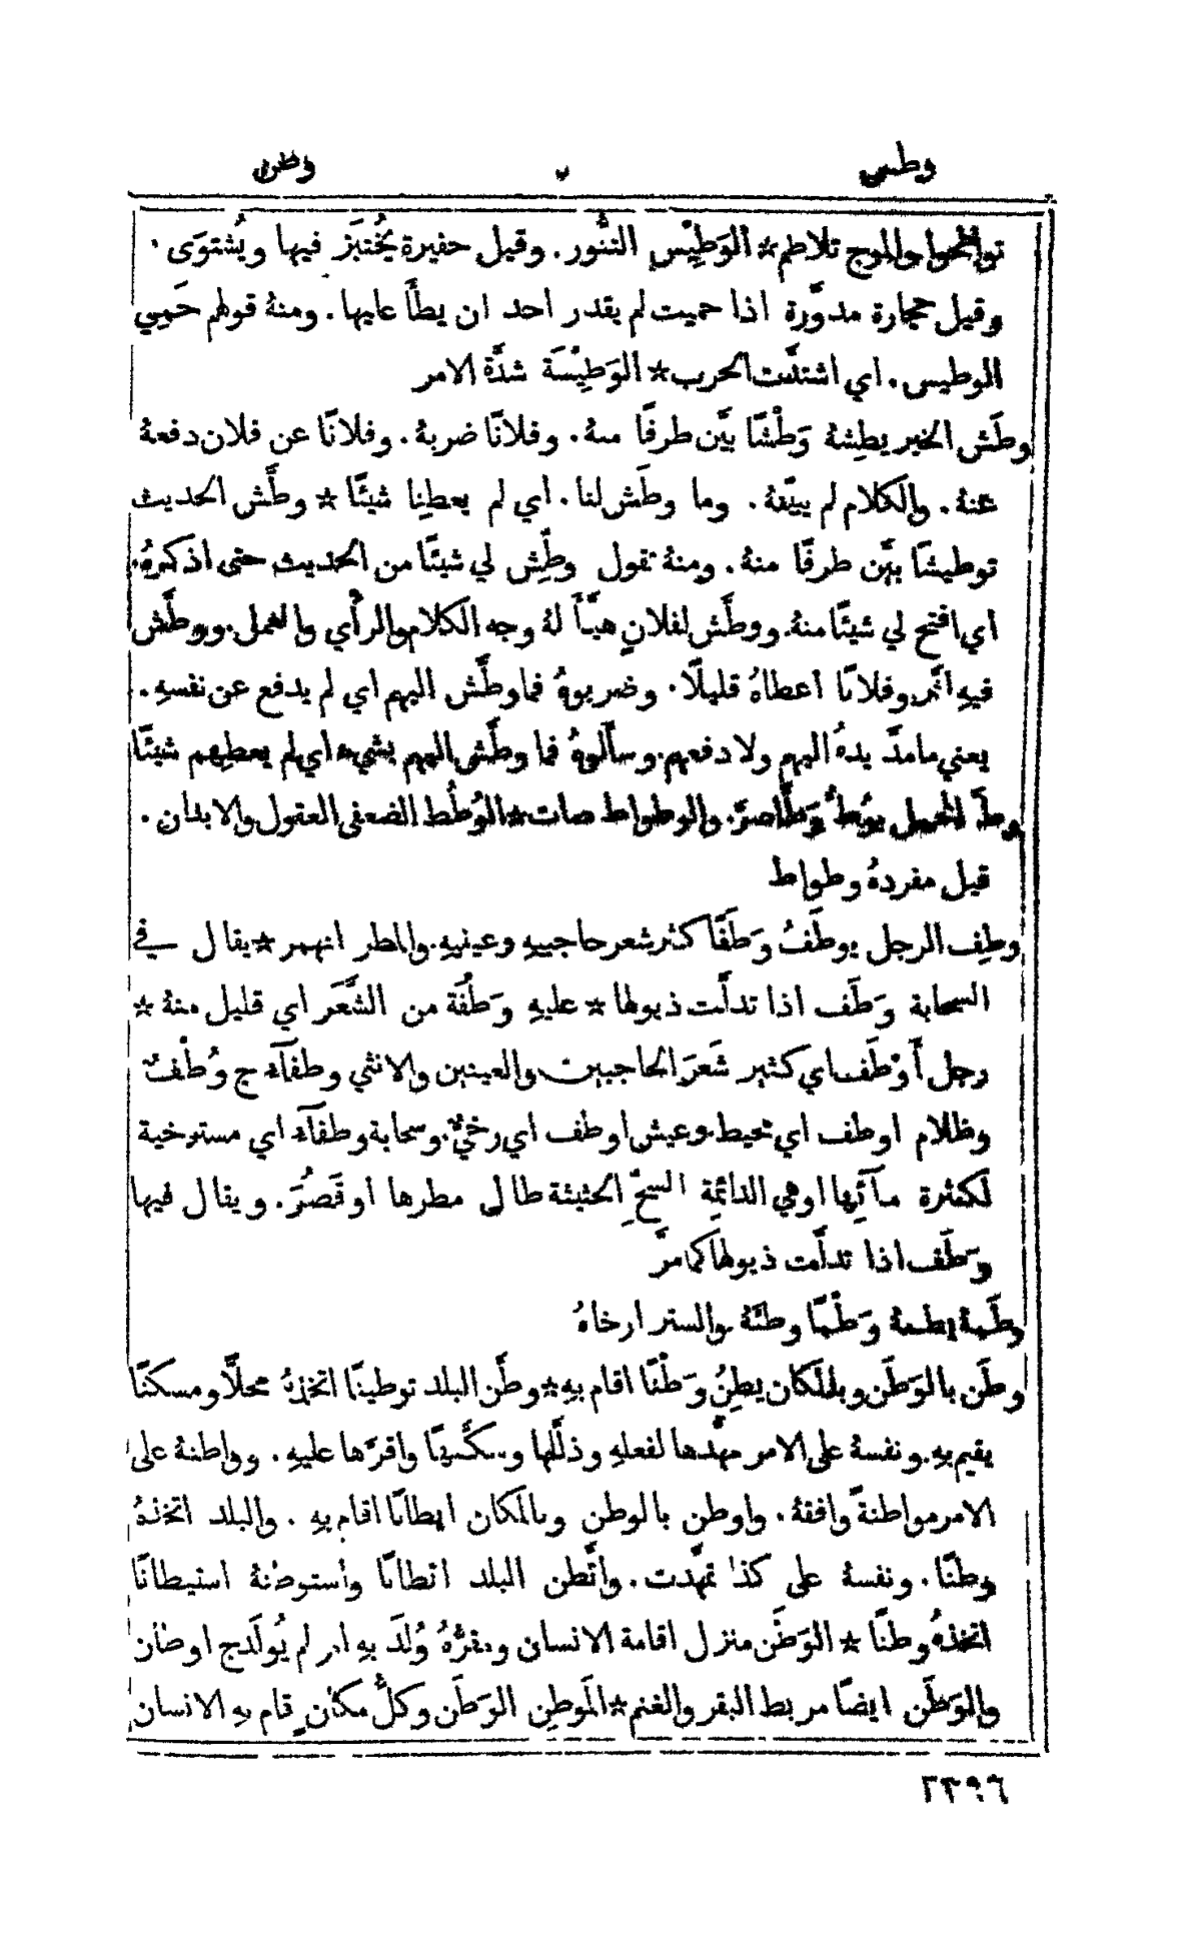 وطس
وطن
تواطحوا والموج تلاطم * الوَطِيْس التنُّور. وقيل حفيرة يُختبَز فيها ويُشتوَى.
وقيل حجارة مدوَّرة اذا حميت لم يقدر احد ان يطأَ عليها. ومنهُ قولهم حَمِي
الوطيس. اي اشتدَّت الحرب * الوَطِيْسَة شدَّة الامر
وطَش الخبر يطِشهُ وَطْشًا بيَّن طرفًا منهُ. وفلانًا ضربهُ. وفلانًا عن فلان دفعهُ
عنهُ. والكلام لم يبيّنهُ. وما وطَش لنا. اي لم يعطِنا شيئًا * وطَّش الحديث
توطيشًا بيَّن طرفًا منهُ. ومنهُ تقول وطِّش لي شيئًا من الحديث حتى اذكرهُ.
اي افتح لي شيئًا منهُ. ووطَّش لفلانٍ هيَّأَ لهُ وجه الكلام والرأْي والعمل. ووطَّش
فيهِ اثَّر. وفلانًا اعطاهُ قليلًا. وضربوهُ فما وطَّش اليهم اي لم يدفع عن نفسهِ.
يعني ما مدَّ يدهُ اليهم ولا دفعهم. وسأَلوهُ فما وطَّش اليهم بشيءٍ اي لم يعطِهم شيئًا
وطَّ المحمل يوُطُّ وَطًّا صرَّ. والوطواط صات * الوُطُط الضعفى العقول والابدان.
قيل مفردهُ وطواط
وطِف الرجل يوطَفُ وَطَفًا كثر شعر حاجبيهِ وعينيهِ. والمطر انهمر * يقال في
السحابة وَطَف اذا تدلَّت ذيولها * عليهِ وَطْفَة من الشَّعَر اي قليل منهُ *
رجل أَوْطَف اي كثير شَعَر الحاجبين والعينين والانثى وطفآءُ ج وُطْفٌ
وظلام اوطف اي محيط. وعيش اوطف اي رخيٌّ. وسحابة وطفآءُ اي مسترخية
لكثرة مآئِها او هي الدائمة السحِّ الحثيثة طال مطرها او قَصُرَ. ويقال فيها
وَطَف اذا تدلَّت ذيولها كما مرَّ
وطَمهُ يطمهُ وَطْمًا وطئَهُ. والستر ارخاهُ
وطَن بالوَطَن وبالمكان يطِنُ وَطْنًا اقام بهِ * وطَّن البلد توطينًا اتخذهُ محلًّا ومسكنًا
يقيم بهِ. ونفسهُ على الامر مهَّدها لفعلهِ وذلَّلها وسكَّنها واقرَّها عليهِ. وواطنهُ على
الامر مواطنةً وافقهُ. واوطن بالوطن وبالمكان ايطانًا اقام بهِ. والبلد اتخذهُ
وطنًا. ونفسهُ على كذا تمهَّدت. واتَّطن البلد اتطانًا واستوطنهُ استيطانًا
اتخذهُ وطنًا * الوَطَن منزل اقامة الانسان ومقرُّهُ وُلدَ بهِ ام لم يُولَد ج اوطان
والوَطَن ايضًا مربط البقر والغنم * المَوطِن الوَطَن وكلُّ مكانٍ قام بهِ الانسان
٢٢٩٦